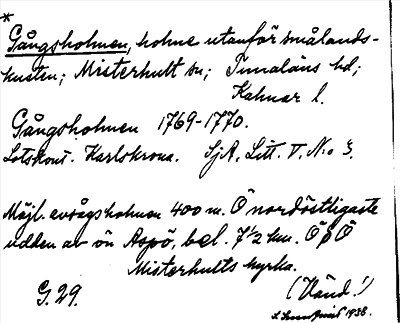 *
Gångsholmen, holme utanför smålands-
kusten; Misterhult sn; Tunaläns hd;
Kalmar l.
Gångsholmen 1769-1770.
Lotskont. Karlskrona. SjA, Litt. V, N:o 3.
Möjl. avågsholmen 400 m. Ö nordöstligaste
udden av ön Aspö, bel. 7 1/2 km. ÖSÖ
Misterhults kyrka.
G. 29. (Vänd!)
1938.